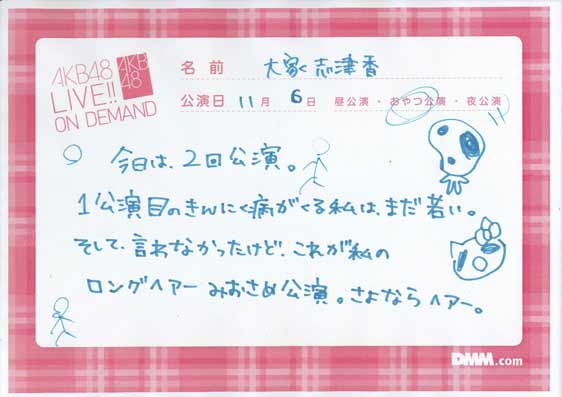 AKB48
LIVE!!
ON DEMAND
AKB
48
名前 大家志津香
公演日 11月 6日 昼公演・おやつ公演・夜公演
今日は、2回公演。
1公演目のきんにく痛がくる私は、まだ若い。
そして、言わなかったけど、これが私の
ロングヘアーみおさめ公演。さよならヘアー。
DMM.com